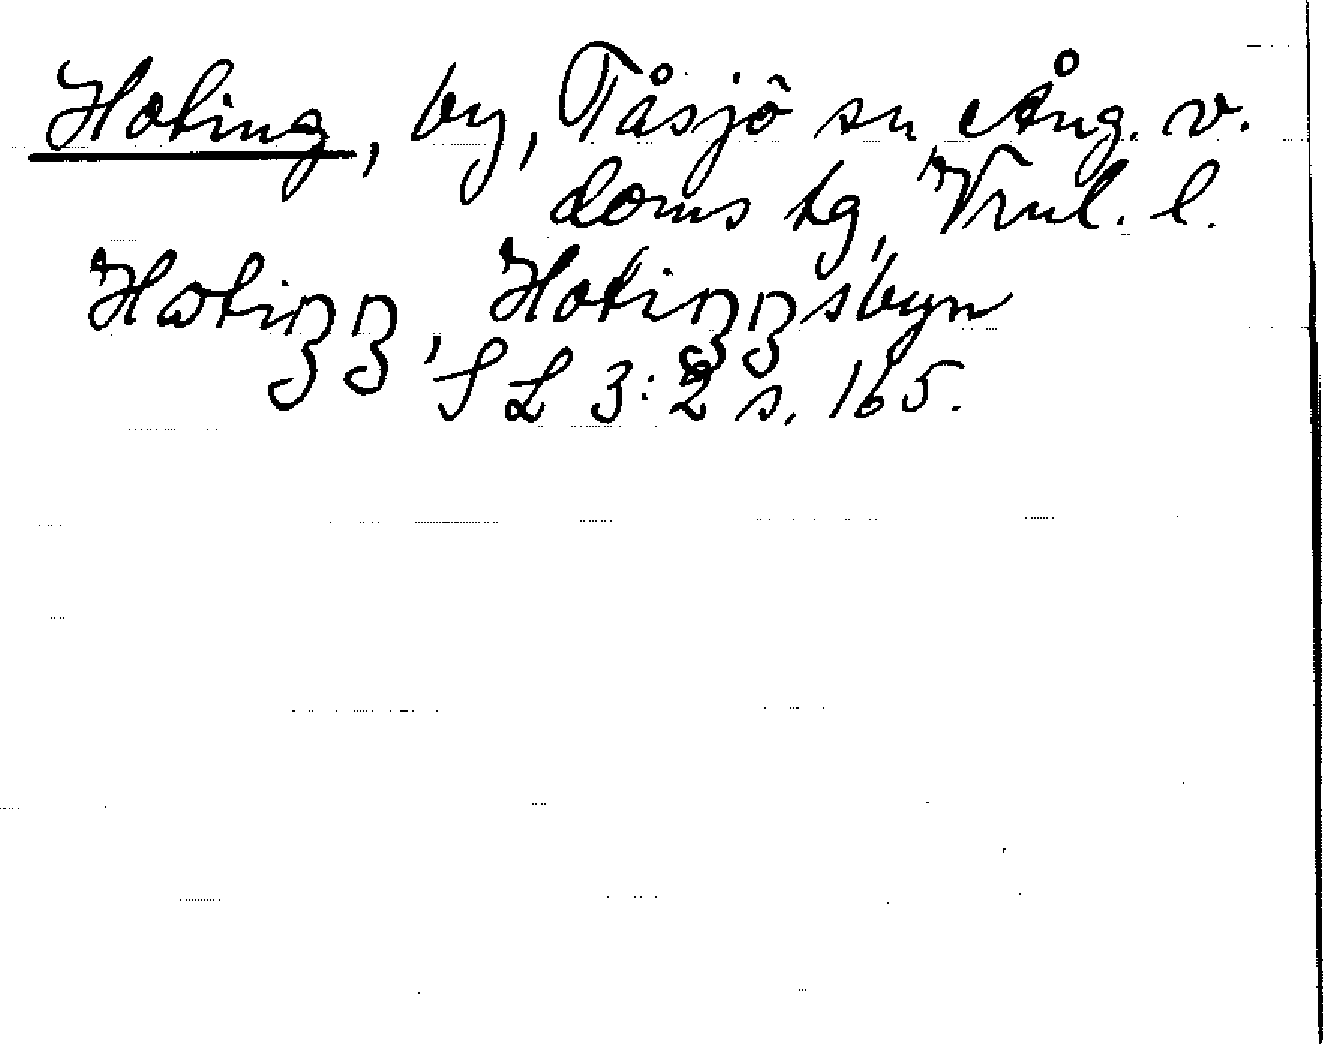 Hoting, by, Tåsjö sn Ång. v.
doms tg, Vrnl. l.
Hotiŋŋ, Hotiŋŋsbyn
SL 3:2 s. 165.